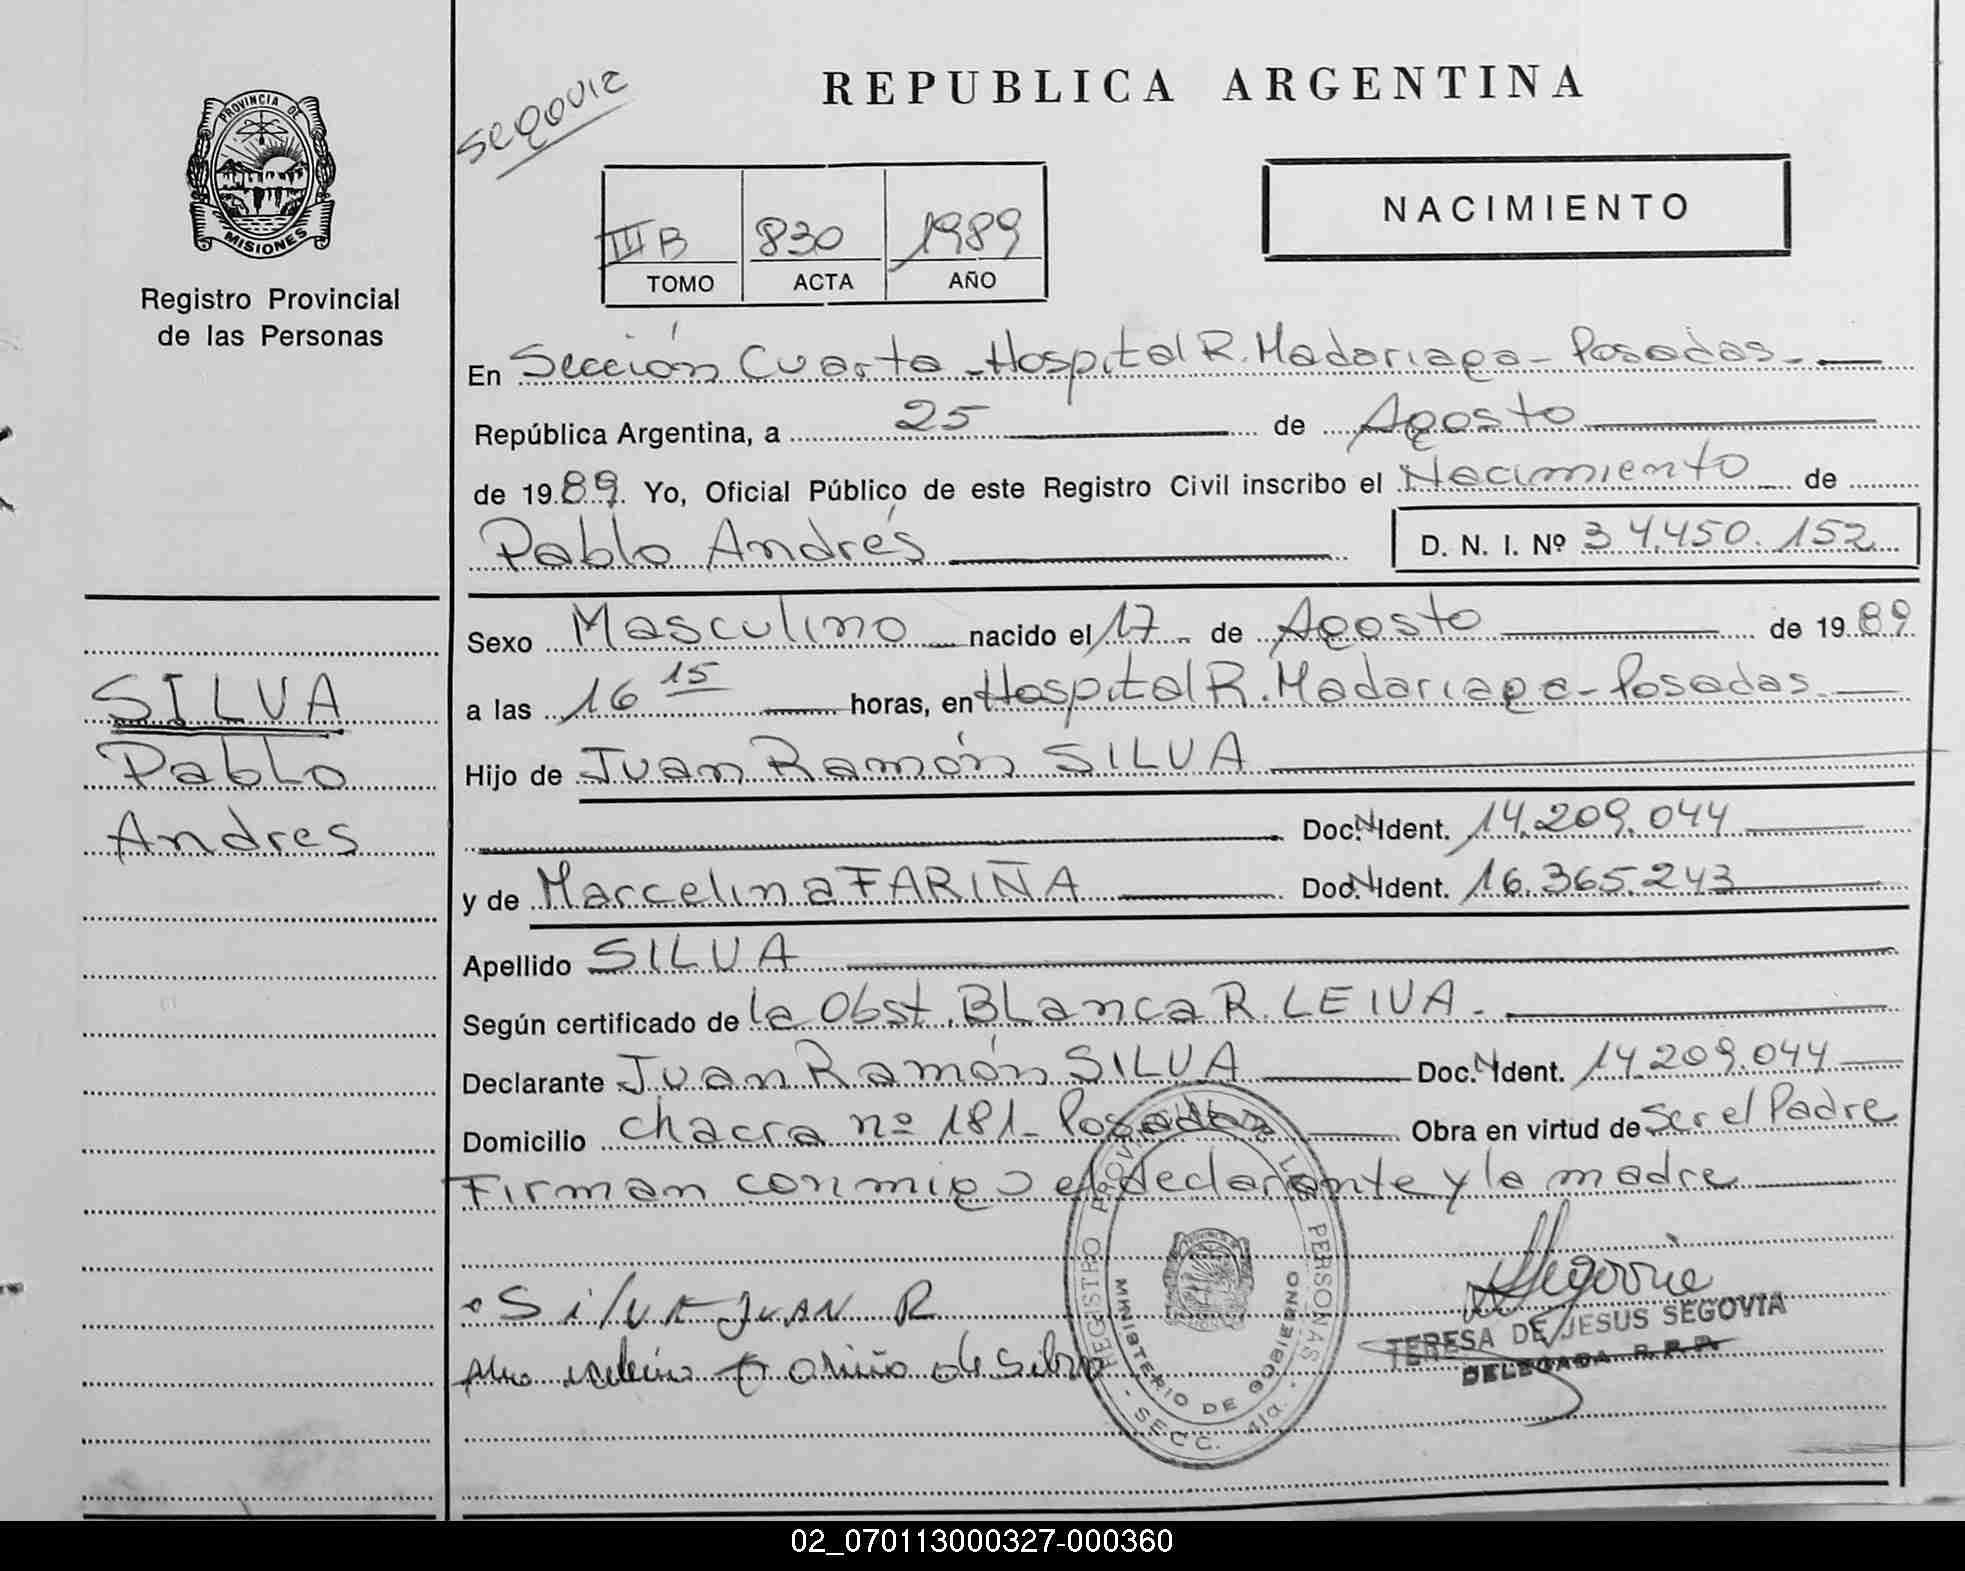 REPUBLICA ARGENTINA
Segovia
PROVINCIA DE
MISIONES
Registro Provincial
de las Personas
III B 830 1989
TOMO ACTA AÑO
NACIMIENTO
En Sección Cuarta - Hospital R. Madariaga - Posadas -
República Argentina, a 25 de Agosto
de 1989. Yo, Oficial Público de este Registro Civil inscribo el Nacimiento de
Pablo Andrés D. N. I. Nº 34.450.152
Sexo Masculino nacido el 17 de Agosto de 1989
a las 16 15 horas, en Hospital R. Madariaga - Posadas.
Hijo de Juan Ramón SILVA
Doc. N Ident. 14.209.044
y de Marcelina FARIÑA Doc. N Ident. 16.365.243
Apellido SILVA
Según certificado de la Obst. Blanca R. LEIVA.
Declarante Juan Ramón SILVA Doc. N Ident. 14.209.044
Domicilio Chacra nº 181 - Posadas Obra en virtud de Ser el Padre
Firman conmigo el declarante y la madre
SILVA
Pablo
Andres
Silva JUAN R
de Silva
Segovia
TERESA DE JESUS SEGOVIA
DELEGADA R.P.P.
REGISTRO PROVINCIAL DE LAS PERSONAS
MINISTERIO DE GOBIERNO
- SECC. 4ta. -
02_070113000327-000360